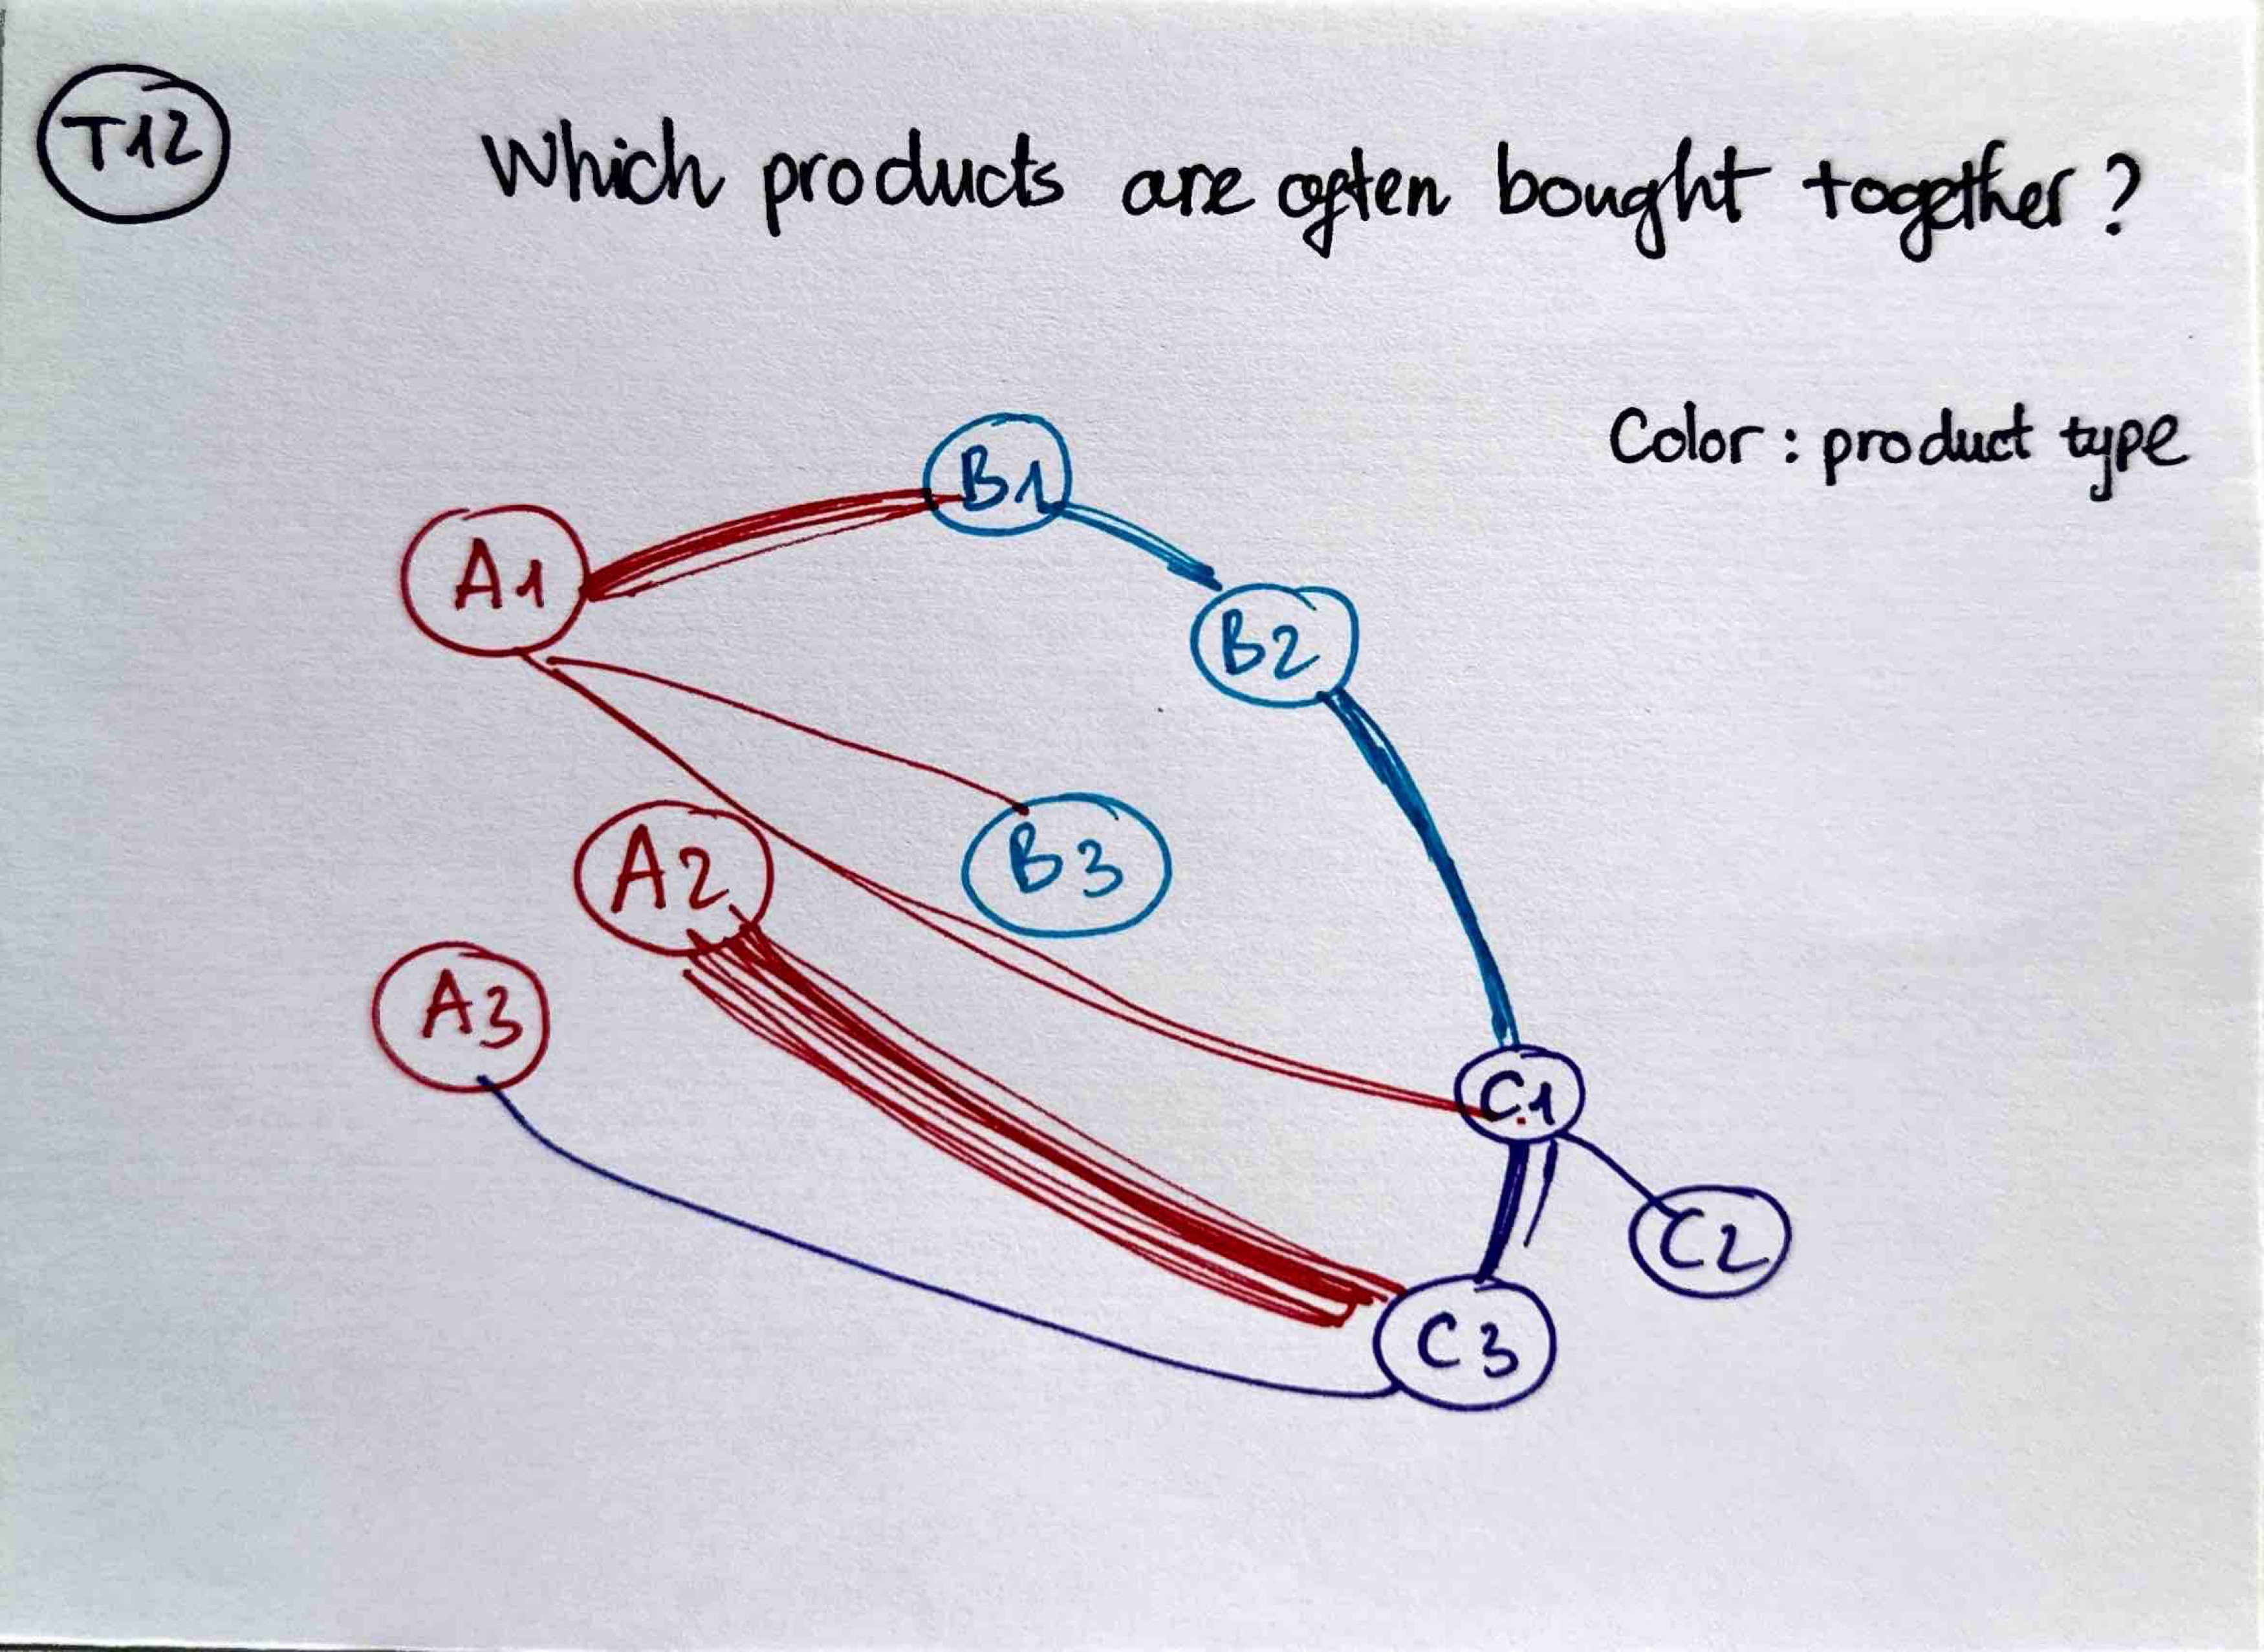 T12
Which products are often bought together?
Color: product type
B1
A1
B2
A2
B3
A3
C1
C2
C3